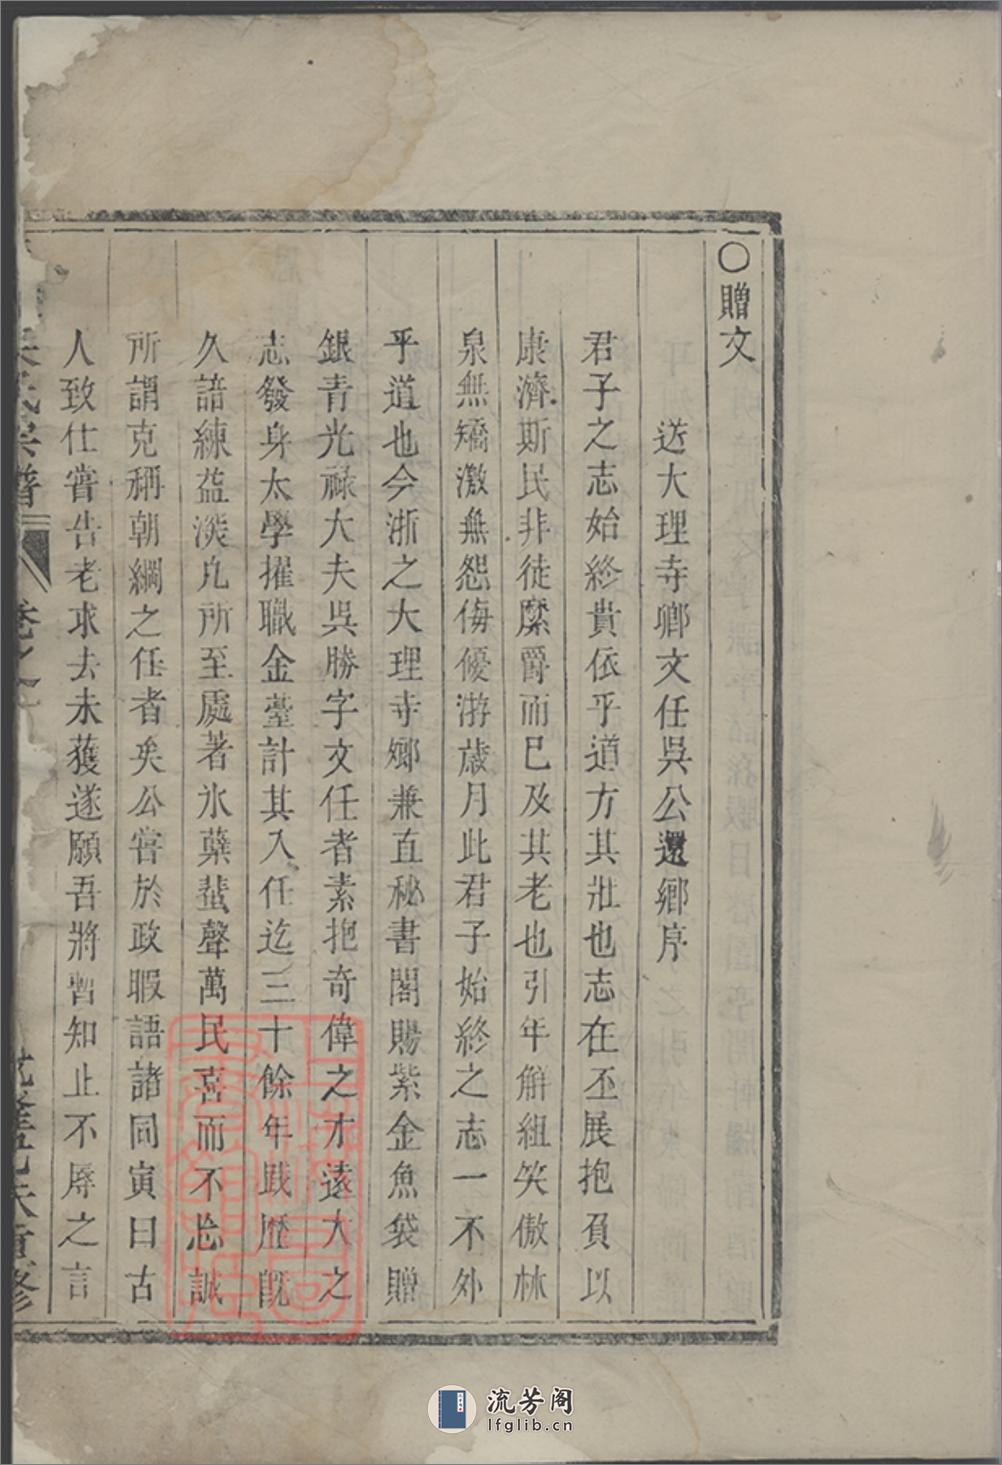 ○贈文
送大理寺卿文任吳公還鄉序
君子之志始終貴依乎道方其壯也志在丕展抱負以
康濟斯民非徒縻爵而已及其老也引年解組笑傲林
泉無矯激無怨侮優游歲月此君子始終之志一不外
乎道也今浙之大理寺卿兼直秘書閣賜紫金魚袋贈
銀青光祿大夫吳勝字文任者素抱奇偉之才遠大之
志發身太學擢職金臺計其入任迄三十餘年踐歷既
久諳練益深凡所至處著氷蘗蜚聲萬民喜而不忘誠
所謂克稱朝綱之任者矣公嘗於政暇語諸同寅曰古
人致仕嘗告老求去未獲遂願吾將暫知止不辱之言
吳氏宗譜
卷之
重修
流芳阁
lfglib.cn